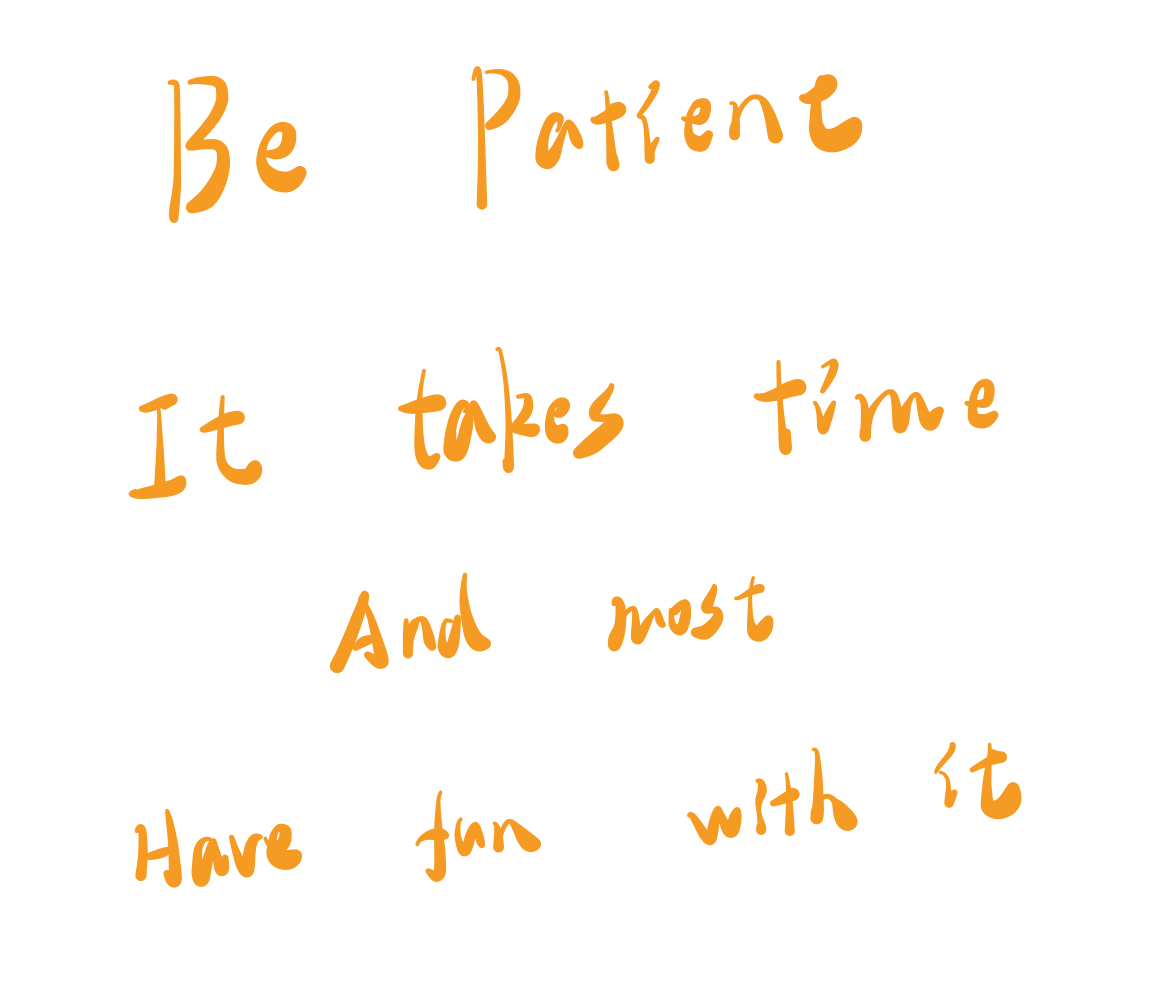 Be Patient
It takes time
And most
Have fun with it